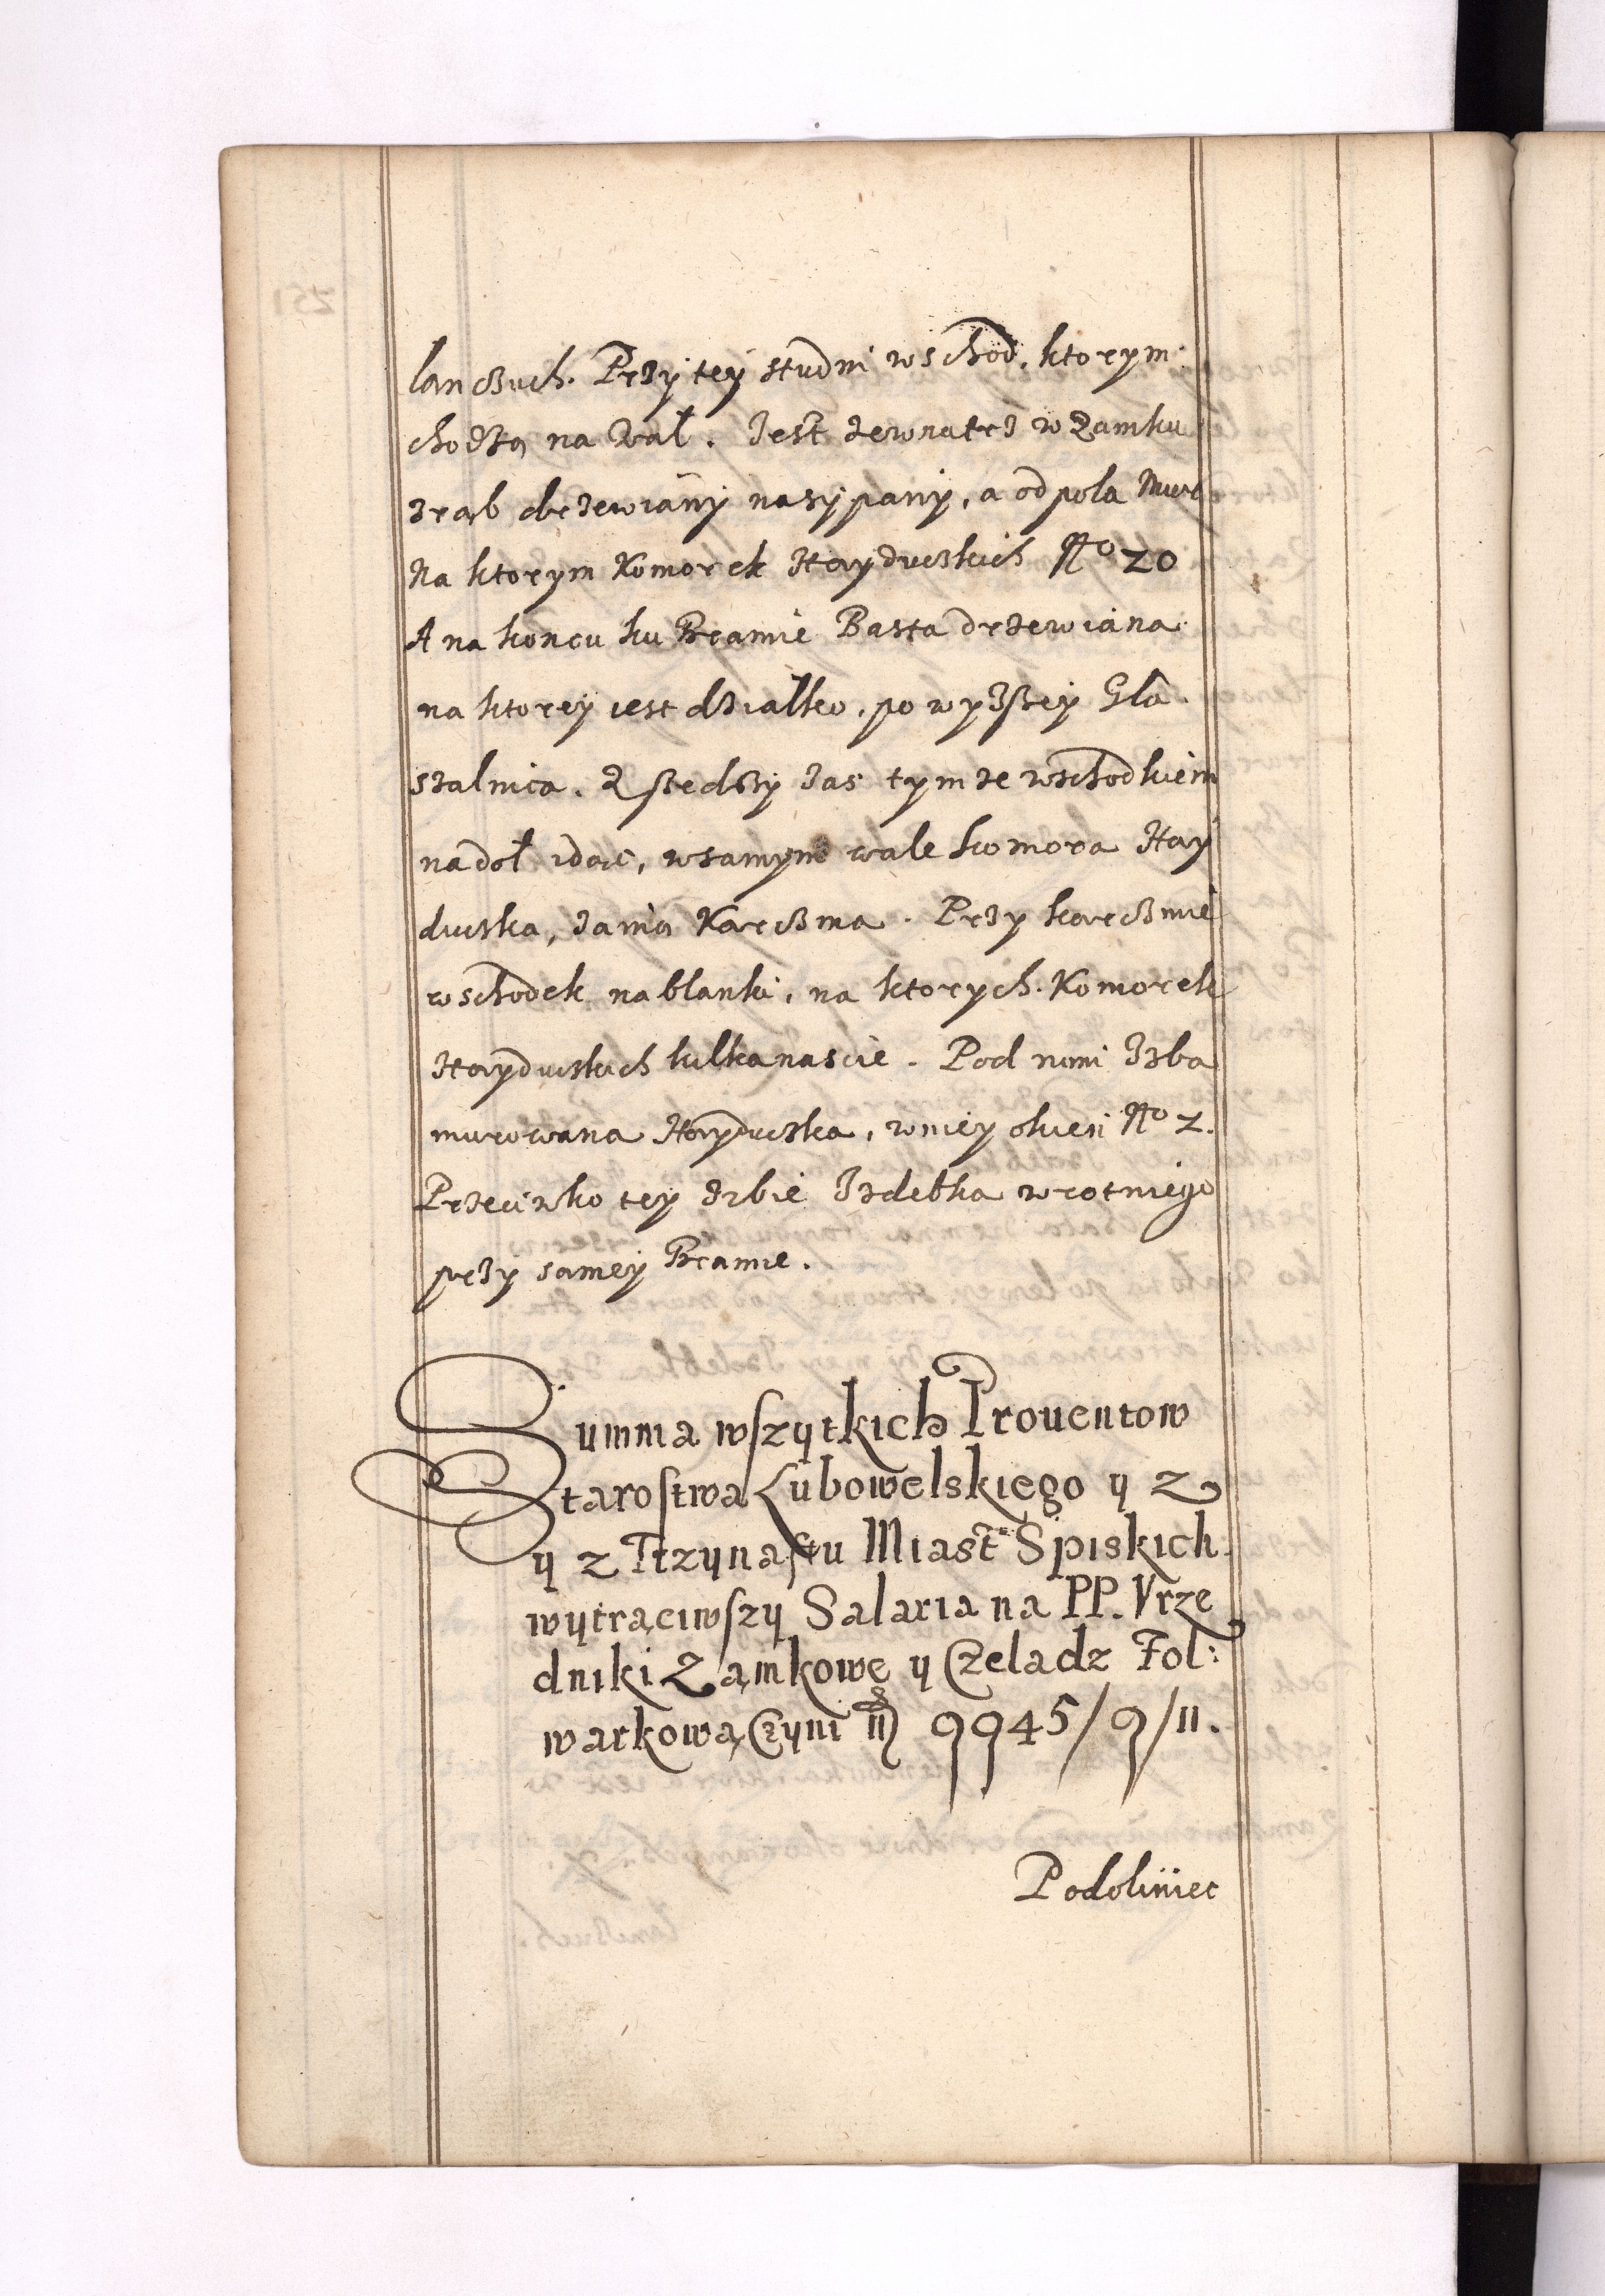 lanczuch. Przy tey studni wschod, ktorym
chodzą na Wał. Jest zewnatrz w Zamku
zrąb drzewiany nasypany, a od pola Mur
Na ktorym Komorek Hayduckich No 20
A na koncu ku Bramie Basta drzewiana
na ktorey iest działko, powyższey Gla
szalnica. Zszedszy zas tymze wschodkiem
na doł idąc, w samym wale komora Hay
ducka, za nią Karczma. Przy karczmie
wschodek na blanki, na ktorych Komorek
Hayduckich kilkanascie. Pod nimi Izba
murowana Hayducka, w niey okien No 2.
Przeciwko tey Izbie Izdebka wrotniego
przy samey Bramie.
Summa wszytkich Prouentow
Starostwa Lubowelskiego y z
y z Trzynastu Miast Spiskich
wytrąciwszy Salaria na PP. Vrzę
dniki Zamkowe y Czeladz Fol:
warkową, Czyni 9945/9/11.
Podoliniec
251